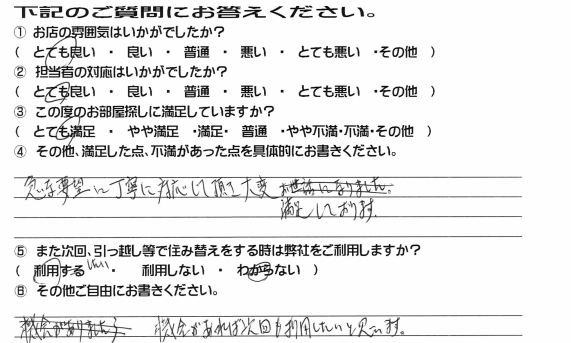 下記のご質問にお答えください。
① お店の雰囲気はいかがでしたか?
( とても良い ・ 良い ・ 普通 ・ 悪い ・ とても悪い ・その他 )
② 担当者の対応はいかがでしたか?
( とても良い ・ 良い ・ 普通 ・ 悪い ・ とても悪い ・その他 )
③ この度のお部屋探しに満足していますか?
( とても満足 ・ やや満足 ・満足・ 普通 ・やや不満・不満・その他 )
④ その他、満足した点、不満があった点を具体的にお書きください。
急な要望に丁寧に対応して頂き大変お世話になりました。
満足しております。
⑤ また次回、引っ越し等で住み替えをする時は弊社をご利用しますか?
( 利用するしたい・ 利用しない ・ わからない )
⑥ その他ご自由にお書きください。
機会がありましたら 機会があれば次回も利用したいと思います。